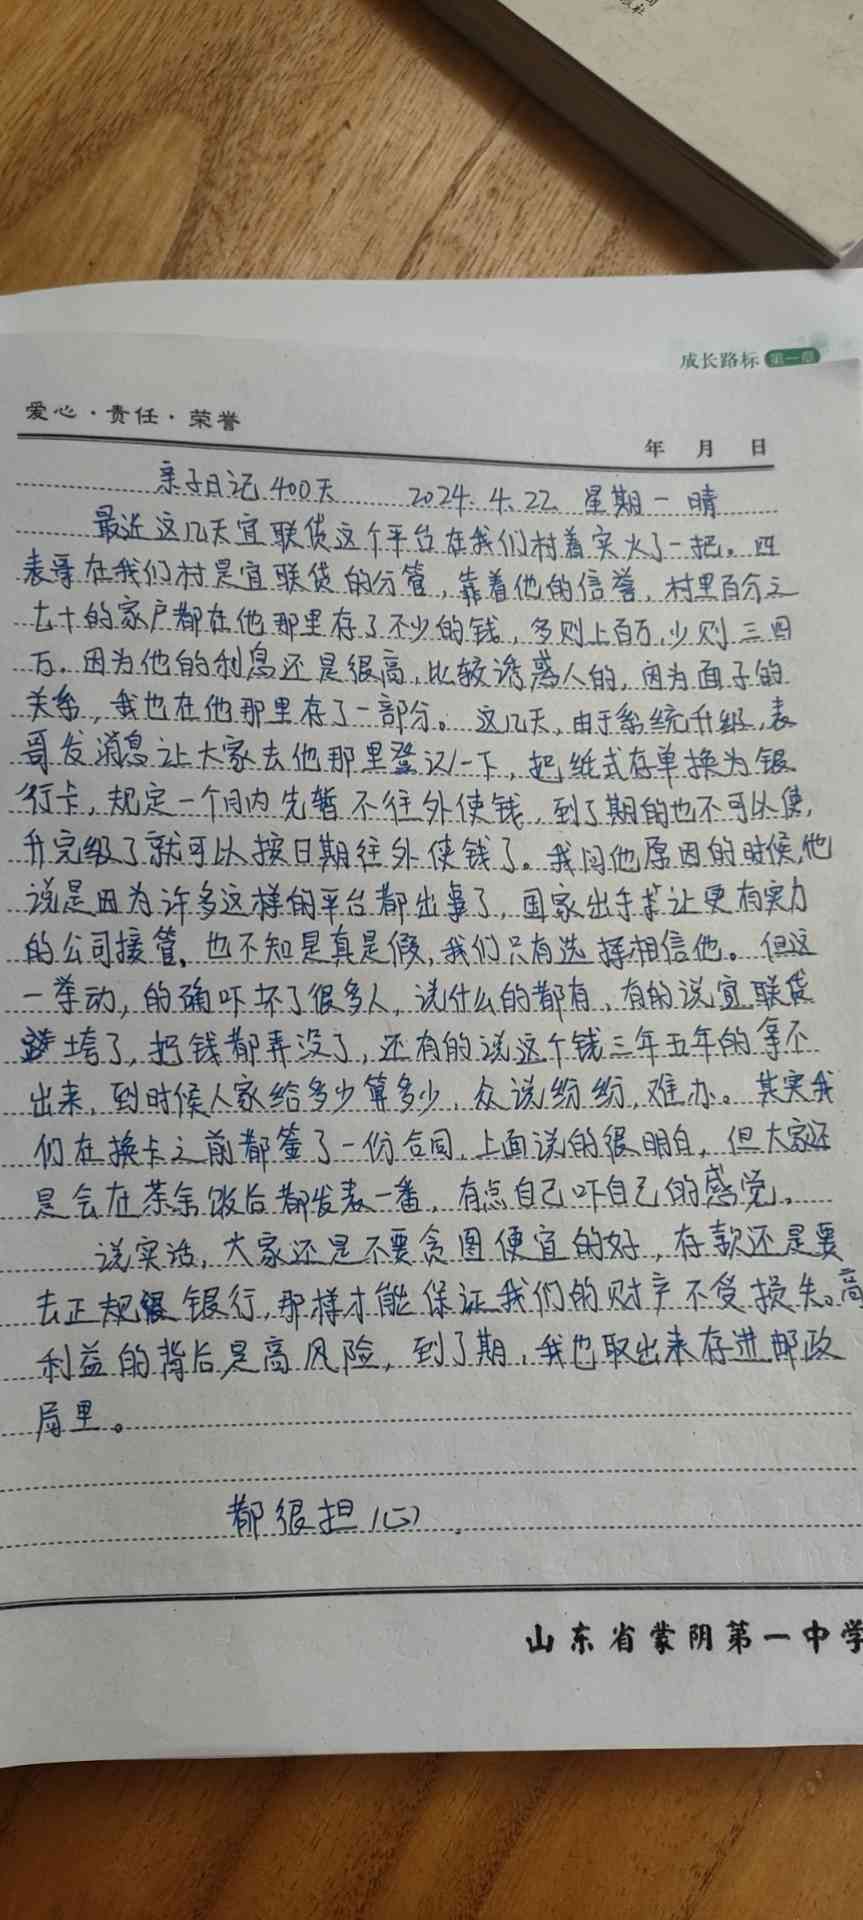 成长路标 第一章
爱心·责任·荣誉
年 月 日
亲子日记400天 2024.4.22 星期一 晴
最近这几天宜联贷这个平台在我们村着实火了一把。四
表哥在我们村是宜联贷的分管，靠着他的信誉，村里百分之
七十的家户都在他那里存了不少的钱，多则上百万，少则三四
万。因为他的利息还是很高，比较诱惑人的，因为面子的
关系，我也在他那里存了一部分。这几天，由于系统升级，表
哥发消息让大家去他那里登记一下，把纸式存单换为银
行卡，规定一个月内先暂不往外使钱，到了期的也不可以使，
升完级了就可以按日期往外使钱了。我问他原因的时候，他
说是因为许多这样的平台都出事了，国家出手让更有实力
的公司接管，也不知是真是假，我们只有选择相信他。但这
一举动，的确吓坏了很多人，说什么的都有，有的说宜联贷
垮了，把钱都弄没了，还有的说这个钱三年五年的拿不
出来，到时候人家给多少算多少，众说纷纷，难办。其实我
们在换卡之前都签了一份合同，上面说的很明白，但大家还
是会在茶余饭后都发表一番，有点自己吓自己的感觉。
说实话，大家还是不要贪图便宜的好，存款还是要
去正规银行，那样才能保证我们的财产不受损失。高
利益的背后是高风险，到了期，我也取出来存进邮政
局里。
都很担心
山东省蒙阴第一中学